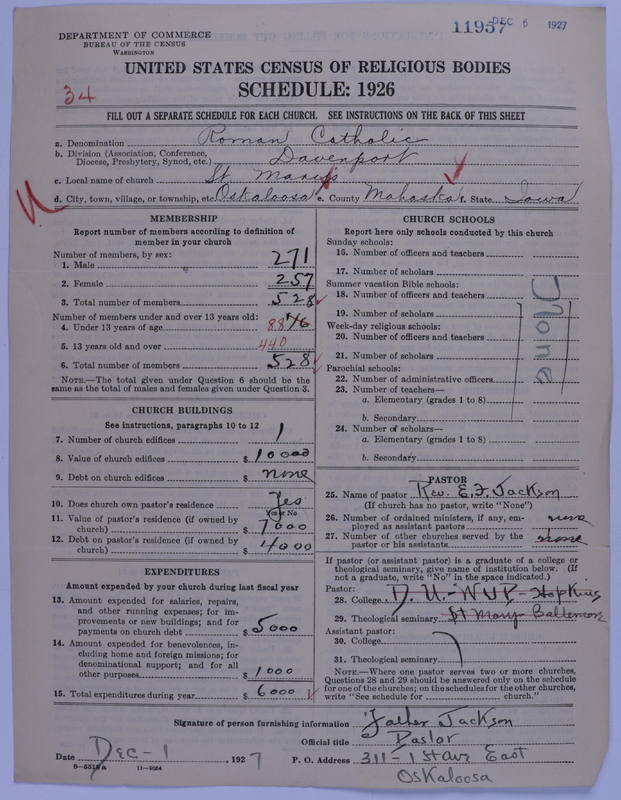 11957 DEC 6 1927
DEPARTMENT OF COMMERCE
BUREAU OF THE CENSUS
WASHINGTON
UNITED STATES CENSUS OF RELIGIOUS BODIES
SCHEDULE: 1926
34
FILL OUT A SEPARATE SCHEDULE FOR EACH CHURCH. SEE INSTRUCTIONS ON THE BACK OF THIS SHEET
a. Denomination Roman Catholic
b. Division (Association, Conference,
Diocese, Presbytery, Synod, etc.) Davenport
c. Local name of church St Mary's
d. City, town, village, or township, etc. Oskaloosa e. County Mahaska f. State Iowa
MEMBERSHIP
Report number of members according to definition of
member in your church
Number of members, by sex:
1. Male 271
2. Female 257
3. Total number of members 528
Number of members under and over 13 years old:
4. Under 13 years of age 88
5. 13 years old and over 440
6. Total number of members 528
NOTE.—The total given under Question 6 should be
same as the total of males and females given under Question 3.
CHURCH BUILDINGS
See instructions, paragraphs 10 to 12
7. Number of church edifices 1
8. Value of church edifices $ 10000
9. Debt on church edifices $ none
10. Does church own pastor's residence Yes
Yes or No
11. Value of pastor's residence (if owned by
church) $ 7000
12. Debt on pastor's residence (if owned by
church) $ 4000
EXPENDITURES
Amount expended by your church during last fiscal year
13. Amount expended for salaries, repairs,
and other running expenses; for im-
provements or new buildings; and for
payments on church debt $ 5000
14. Amount expended for benevolences, in-
cluding home and foreign missions; for
denominational support; and for all
other purposes $ 1000
15. Total expenditures during year $ 6000
CHURCH SCHOOLS
Report here only schools conducted by this church
Sunday schools:
16. Number of officers and teachers
17. Number of scholars
Summer vacation Bible schools:
18. Number of officers and teachers
19. Number of scholars
Week-day religious schools:
20. Number of officers and teachers
21. Number of scholars
Parochial schools:
22. Number of administrative officers
23. Number of teachers—
a. Elementary (grades 1 to 8)
b. Secondary
24. Number of scholars—
a. Elementary (grades 1 to 8)
b. Secondary
None
PASTOR
25. Name of pastor Rev. E. F. Jackson
(If church has no pastor, write "None")
26. Number of ordained ministers, if any, em-
ployed as assistant pastors none
27. Number of other churches served by the
pastor or his assistants none
If pastor (or assistant pastor) is a graduate of a college or
theological seminary, give name of institution below. (If
not a graduate, write "No" in the space indicated.)
Pastor:
28. College D. U.-WUR-Hopkins
29. Theological seminary St Mary-
Assistant pastor:
30. College
31. Theological seminary
NOTE.—Where one pastor serves two or more churches,
Questions 28 and 29 should be answered only on the schedule
for one of the churches; on the schedules for the other churches,
write "See schedule for church."
Signature of person furnishing information Father Jackson
Official title Pastor
Date Dec-1, 1927 P. O. Address 311-1st Ave East
8-5518a 11-9064
Oskaloosa